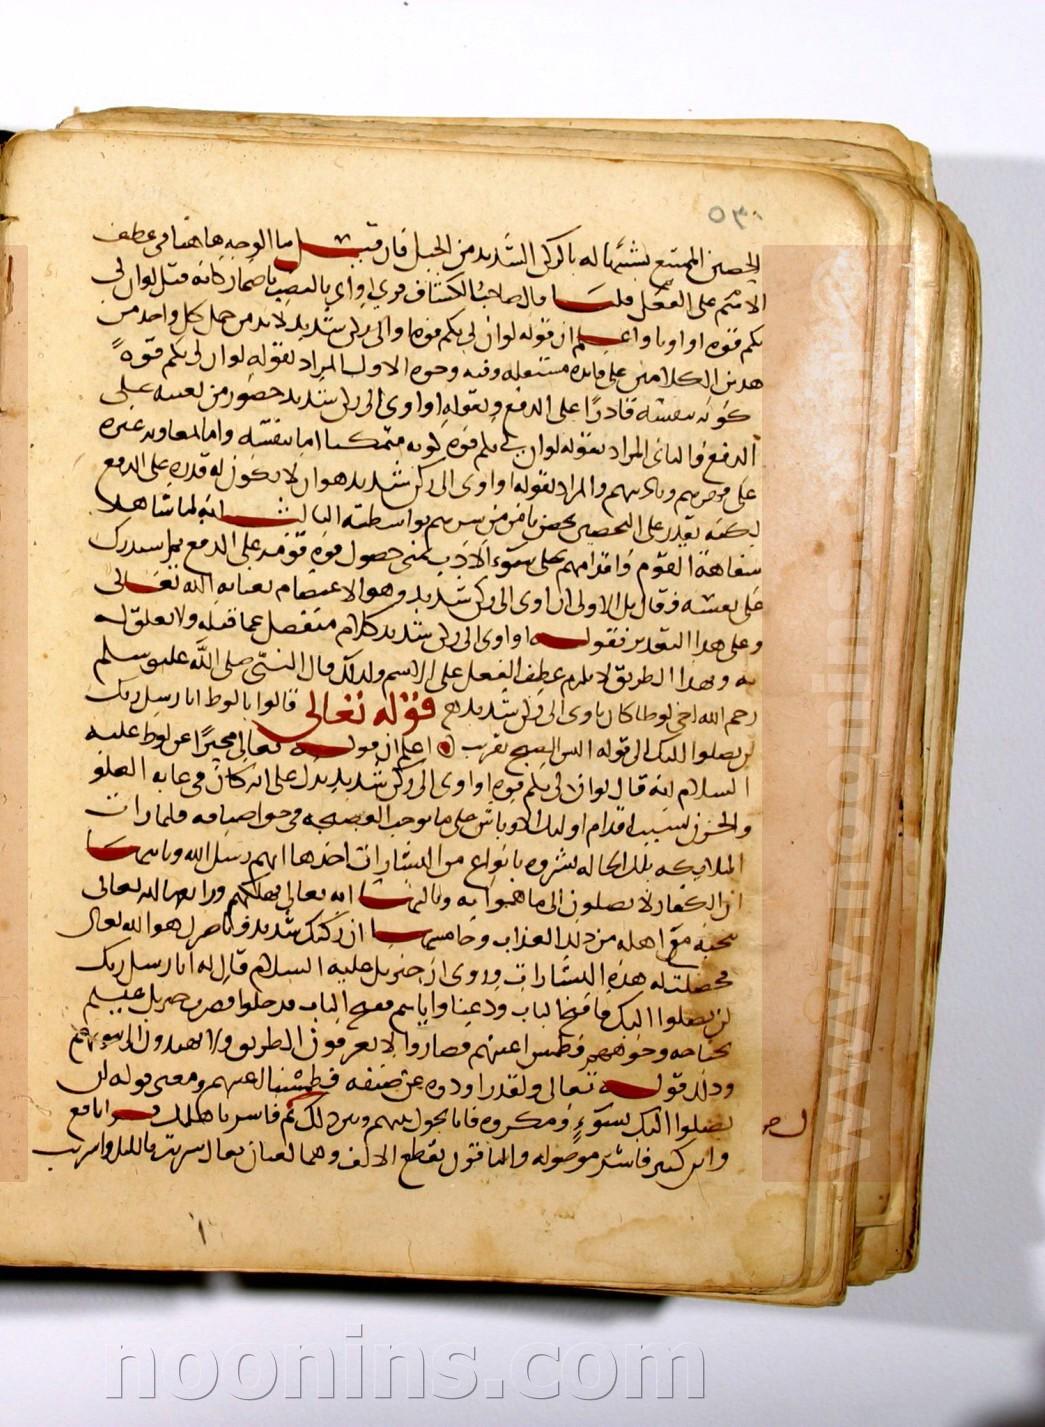 ٥٣٠
الحصين الممتنع يشبهها له بالركن الشديد من الجبل فان قيل ما الوجه هاهنا في عطف
الاسم على الفعل قلنا قال صاحب الكشاف قرئ او اوي بالنصب باضمار كانه قيل لو ان لي
بكم قوة او اويا واعلم ان قوله لو ان لي بكم قوة او اوي الى ركن شديد لا بد من حمل كل واحد من
هذين الكلامين على فايدة مستقلة وفيه وجوه الاول المراد بقوله لو ان لي بكم قوة
كونه بنفسه قادرا على الدفع وبقوله او اوي الى ركن شديد حصور من يعينه على
الدفع والثاني المراد بقوله لو ان لي بكم قوة كونه متمكنا اما بنفسه واما بمعاونة غيره
على قهرهم وتاديبهم والمراد بقوله او اوي الى ركن شديد هو ان لا يكون له قدرة على الدفع
لكنه يقدر على التحصين بحصن يامن من شرهم بواسطته الثالث انه لما شاهد
سفاهة القوم واقدامهم على سوء الادب تمنى حصول قوة قوية على الدفع ثم استدرك
على نفسه فقال بل الاولى ان اوي الى ركن شديد وهو الاعتصام بعناية الله تعالى
وعلى هذا التقدير فقوله او اوي الى ركن شديد كلام منفصل عما قبله ولا تعلق له
به وبهذا الطريق لا يلزم عطف الفعل على الاسم ولذلك قال النبي صلى الله عليه وسلم
رحم الله اخي لوطا كان ياوي الى ركن شديد قوله تعالى قالوا يا لوط انا رسل ربك
لن يصلوا اليك الى قوله اليس الصبح بقريب اعلم ان قوله تعالى مخبرا عن لوط عليه
السلام انه قال لو ان لي بكم قوة او اوي الى ركن شديد يدل على انه كان في غاية القلق
والحزن بسبب اقدام اوليك الاوباش على ما يوجب الفضيحة في حق اضيافه فلما رات
الملايكة تلك الحالة بشروه بانواع من البشارات احدها انهم رسل الله وثانيها
ان الكفار لا يصلون الى ما هموا به وثالثها انه تعالى يهلكهم ورابعها انه تعالى
ينجيه مع اهله من ذلك العذاب وخامسها ان ركنك شديد فناصرك هو الله تعالى
فحصلت له هذه البشارات وروي ان جبريل عليه السلام قال له انا رسل ربك
لن يصلوا اليك فافتح الباب ودعنا واياهم ففتح الباب فدخلوا فضرب جبريل عليهم
بجناحه وجوههم فطمس اعينهم فصاروا لا يعرفون الطريق ولا يهتدون الى بيوتهم
وذلك قوله تعالى ولقد راودوه عن ضيفه فطمسنا اعينهم ومعنى قوله لن
يصلوا اليك بسوء ومكروه فانا نحول بينهم وبين ذلك ثم فاسر باهلك قرا نافع
وابن كثير فاسر موصولة والباقون بقطع الالف وهما لغتان يقال سريت بالليل واسريت